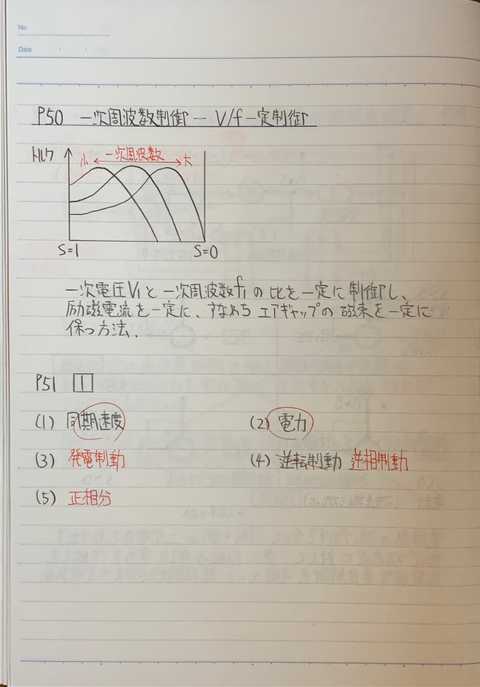 No.
Date
P50 一次周波数制御 ― V/f一定制御
トルク
小 ←一次周波数→ 大
S=1 S=0
一次電圧V₁と一次周波数f₁の比を一定に制御し、
励磁電流を一定に、すなわちエアギャップの磁束を一定に
保つ方法.
P51 1
(1) 同期速度 (2) 電力
(3) 発電制動 (4) 逆転制動 逆相制動
(5) 正相分